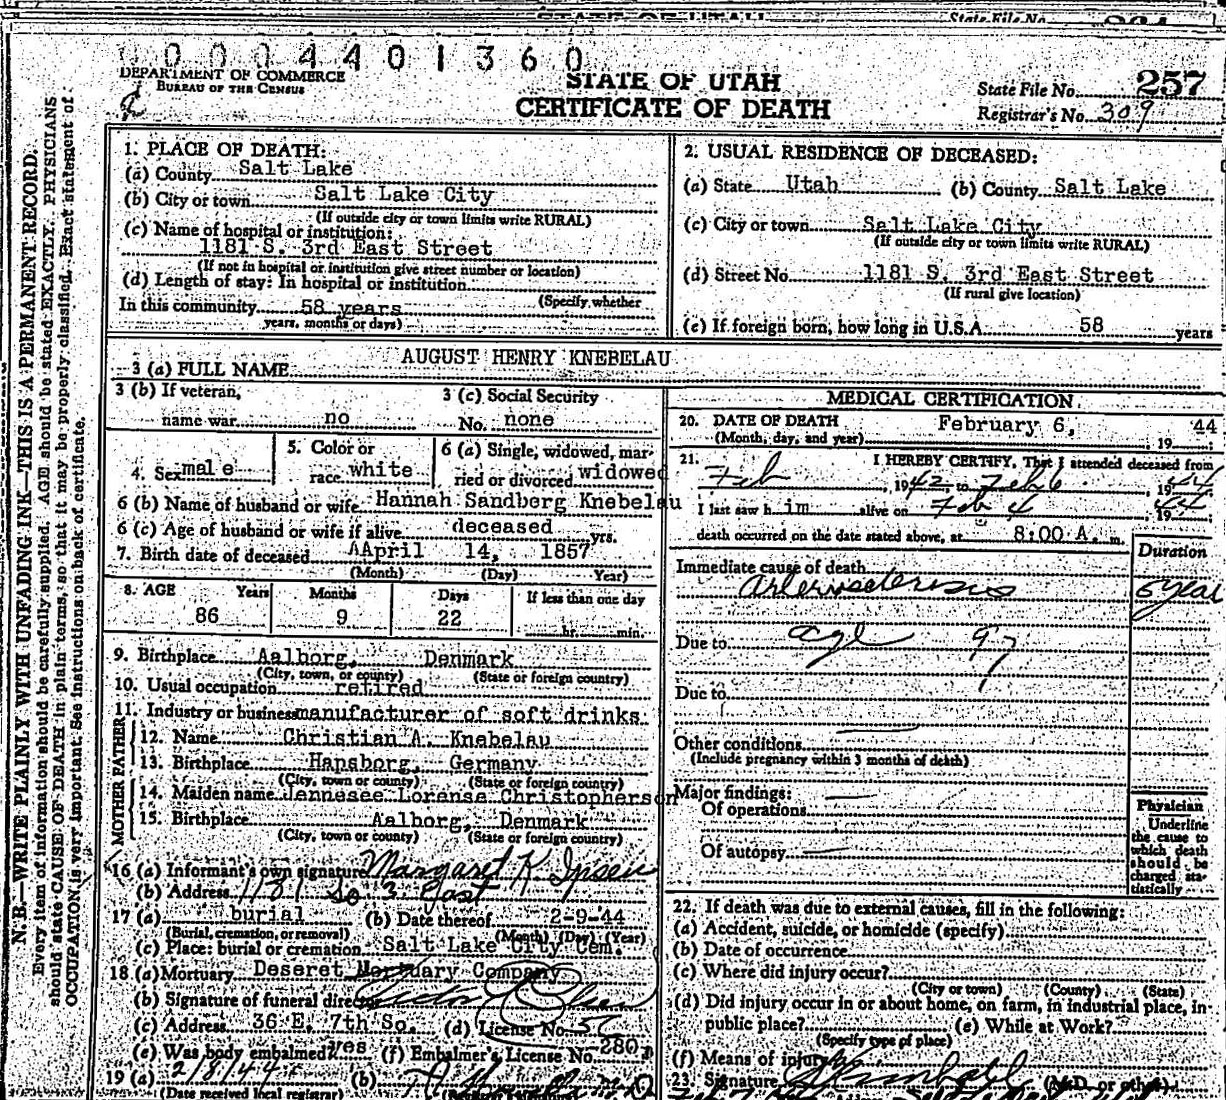 STATE OF UTAH
State File No.
0004401360
DEPARTMENT OF COMMERCE
BUREAU OF THE CENSUS
STATE OF UTAH
CERTIFICATE OF DEATH
State File No. 257
Registrar's No. 309
N. B.—WRITE PLAINLY WITH UNFADING INK—THIS IS A PERMANENT RECORD.
Every item of information should be carefully supplied. AGE should be stated EXACTLY. PHYSICIANS
should state CAUSE OF DEATH in plain terms, so that it may be properly classified. Exact statement of
OCCUPATION is very important. See instructions on back of certificate.
1. PLACE OF DEATH:
(a) County Salt Lake
(b) City or town Salt Lake City
(If outside city or town limits write RURAL)
(c) Name of hospital or institution:
1181 S. 3rd East Street
(If not in hospital or institution give street number or location)
(d) Length of stay: In hospital or institution
(Specify whether
In this community 58 years
years, months or days)
2. USUAL RESIDENCE OF DECEASED:
(a) State Utah (b) County Salt Lake
(c) City or town Salt Lake City
(If outside city or town limits write RURAL)
(d) Street No. 1181 S. 3rd East Street
(If rural give location)
(e) If foreign born, how long in U.S.A. 58 years
3 (a) FULL NAME AUGUST HENRY KNEBELAU
3 (b) If veteran,
name war no
3 (c) Social Security
No. none
4. Sex male
5. Color or
race white
6 (a) Single, widowed, mar-
ried or divorced widowed
6 (b) Name of husband or wife Hannah Sandberg Knebelau
6 (c) Age of husband or wife if alive deceased yrs.
7. Birth date of deceased AApril 14, 1857
(Month) (Day) Year)
8. AGE Years Months Days If less than one day
86 9 22 hr. min.
9. Birthplace Aalborg, Denmark
(City, town, or county) (State or foreign country)
10. Usual occupation retired
11. Industry or business manufacturer of soft drinks
FATHER
12. Name Christian A. Knebelau
13. Birthplace Hapsborg, Germany
(City, town or county) (State or foreign country)
MOTHER
14. Maiden name Jennesee Lorense Christopherson
15. Birthplace Aalborg, Denmark
(City, town or county) (State or foreign country)
16 (a) Informant's own signature Margaret K. Ipsen
(b) Address 1181 So 3 East
17 (a) burial (b) Date thereof 2-9-44
(Burial, cremation, or removal) (Month) (Day) (Year)
(c) Place: burial or cremation Salt Lake City Cem.
18 (a) Mortuary Deseret Mortuary Company
(b) Signature of funeral director
(c) Address 36 E. 7th So. (d) License No. 57
(e) Was body embalmed? yes (f) Embalmer's License No. 280
19 (a) 2/8/44 (b)
(Date received local registrar)
MEDICAL CERTIFICATION
20. DATE OF DEATH February 6, 19 44
(Month, day, and year)
21. I HEREBY CERTIFY, That I attended deceased from
Feb, 1942 to Feb 6, 1944
I last saw h im alive on Feb 4, 1944
death occurred on the date stated above, at 8:00 A. m.
Duration
Immediate cause of death
Arteriosclerosis 5 year
Due to age 97
Due to
Other conditions
(Include pregnancy within 3 months of death)
Major findings:
Of operations
Of autopsy
Physician
Underline
the cause to
which death
should be
charged sta-
tistically
22. If death was due to external causes, fill in the following:
(a) Accident, suicide, or homicide (specify)
(b) Date of occurrence
(c) Where did injury occur?
(City or town) (County) (State)
(d) Did injury occur in or about home, on farm, in industrial place, in
public place? (e) While at Work?
(Specify type of place)
(f) Means of injury
23. Signature (M.D. or other)